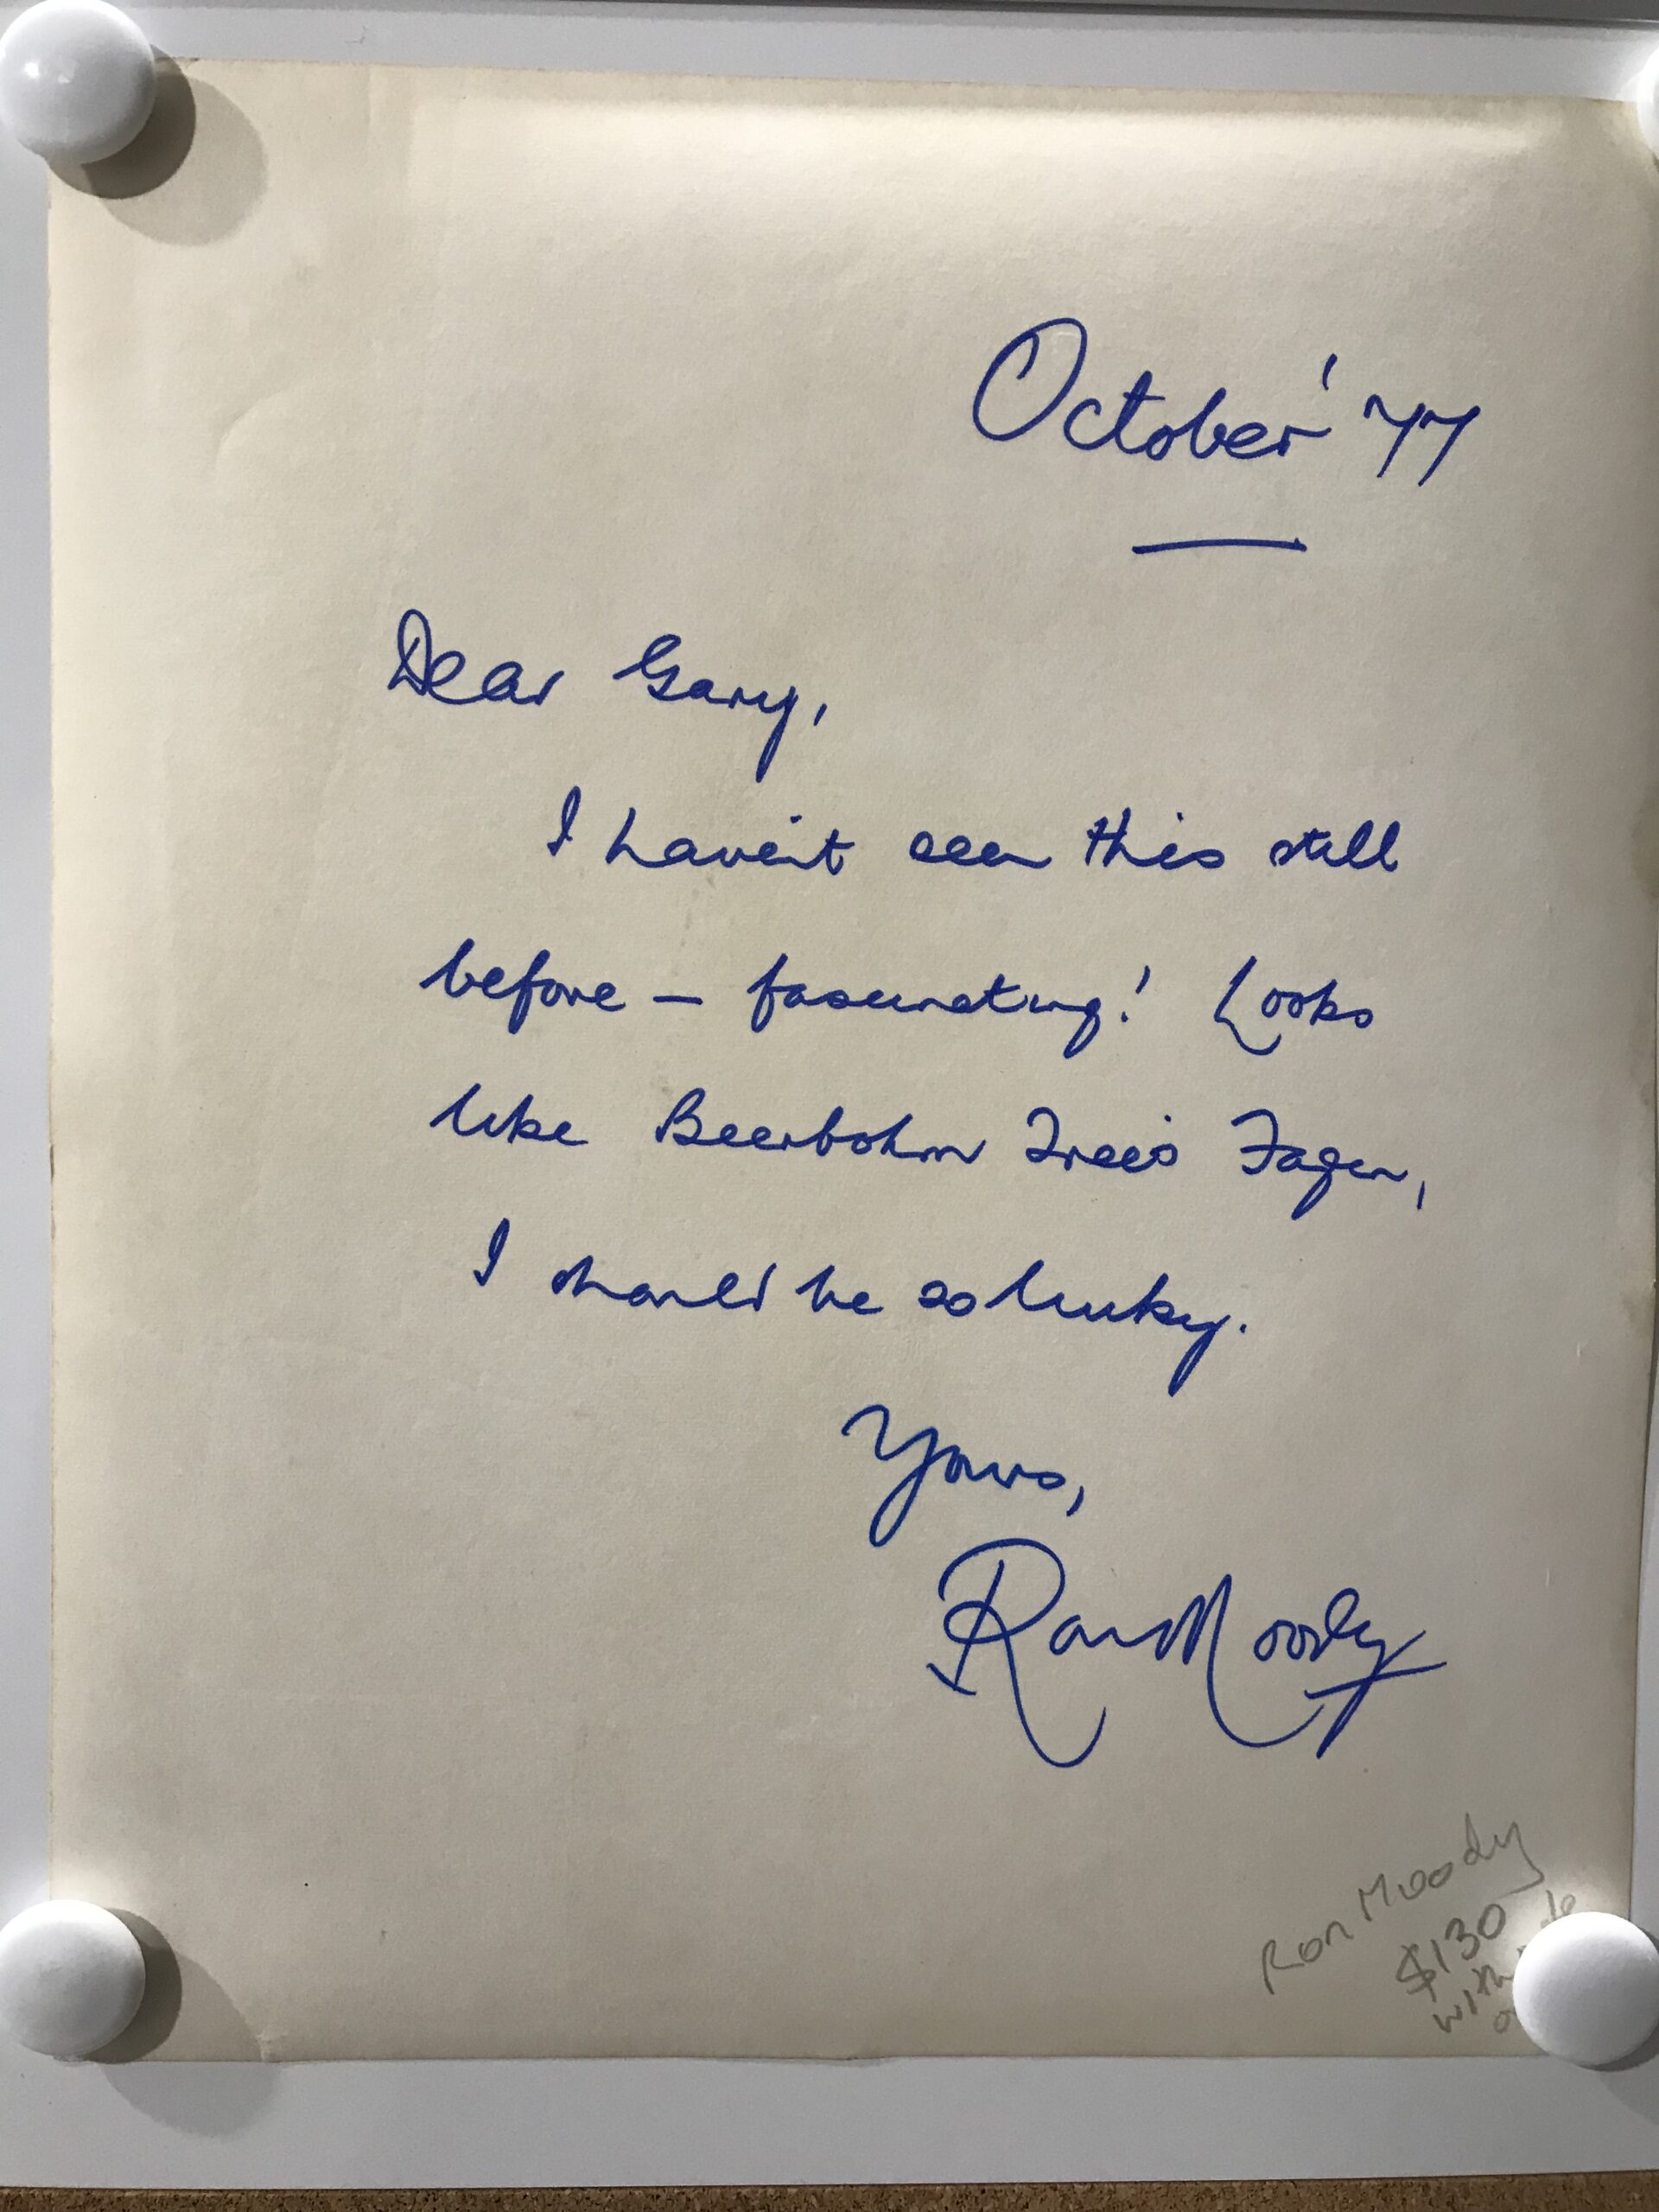 October '77
Dear Gary,
I haven't seen this still
before — fascinating! Looks
like Beerbohm Tree's Fagin,
I should be so lucky.
Yours,
Ron Moody
Ron Moody
$130
with